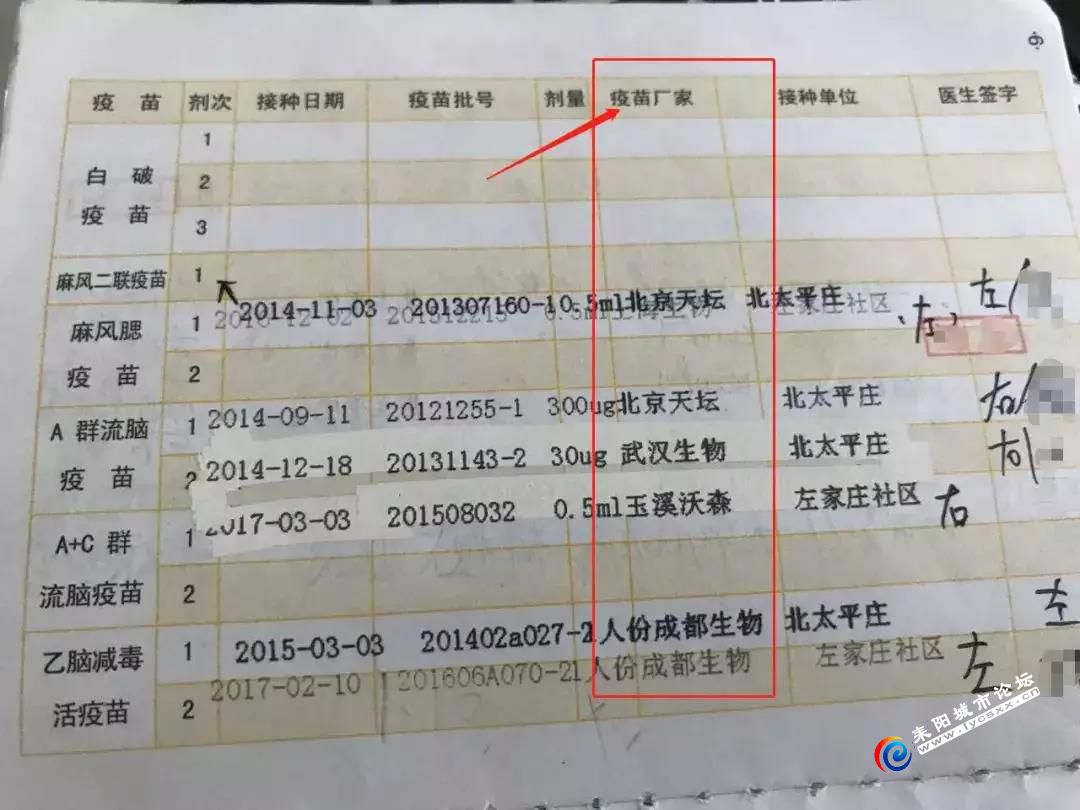 9
疫苗 剂次 接种日期 疫苗批号 剂量 疫苗厂家 接种单位 医生签字
白破疫苗 1
2
3
麻风二联疫苗 1
2014-11-03 201307160-1 0.5ml 北京天坛 北太平庄 左/
麻风腮疫苗 1 左家庄社区 左
2
A 群流脑疫苗 1 2014-09-11 20121255-1 300ug 北京天坛 北太平庄 右/
2 2014-12-18 20131143-2 30ug 武汉生物 北太平庄 右/
A+C 群流脑疫苗 1 2017-03-03 201508032 0.5ml 玉溪沃森 左家庄社区 右
2
乙脑减毒活疫苗 1 2015-03-03 201402a027-2 人份 成都生物 北太平庄 左
2 2017-02-10 201606A070-2 1人份 成都生物 左家庄社区 左
耒阳城市论坛
www.lycsxx.cn